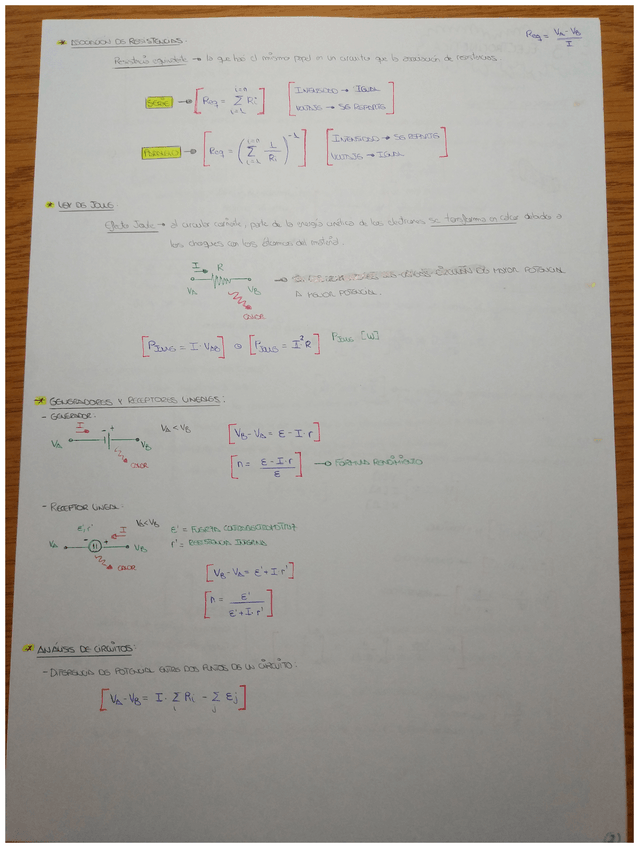 * ASOCIACIÓN DE RESISTENCIAS:
Req = VA - VB / I
Resistencia equivalente → la que hace el mismo papel en un circuito que la asociación de resistencias.
SERIE → [Req = Σ Ri i=1 i=n] [INTENSIDAD → IGUAL
VOLTAJE → SE REPARTE]
PARALELO → [Req = (Σ 1/Ri i=1 i=n)^-1] [INTENSIDAD → SE REPARTE
VOLTAJE → IGUAL]
* LEY DE JOULE
Efecto Joule → al circular corriente, parte de la energía cinética de los electrones se transforma en calor debido a
los choques con los átomos del material.
I R
VA VB
CALOR
→ DE MAYOR POTENCIAL
A MENOR POTENCIAL.
[PJOULE = I · VAB] o [PJOULE = I²·R] PJOULE [W]
* GENERADORES Y RECEPTORES LINEALES:
- GENERADOR:
I - + VA < VB
VA VB
CALOR
[VB - VA = ε - I·r]
[n = ε - I·r / ε] → FÓRMULA RENDIMIENTO
- RECEPTOR LINEAL:
ε', r' I VA<VB
VA - + VB
CALOR
ε' = FUERZA CONTRAELECTROMOTRIZ
r' = RESISTENCIA INTERNA
[VB - VA = ε' + I·r']
[n = ε' / ε' + I·r']
* ANÁLISIS DE CIRCUITOS:
- DIFERENCIA DE POTENCIAL ENTRE DOS PUNTOS DE UN CIRCUITO:
[VA - VB = I · Σ Ri - Σ εj]
i j
(2)